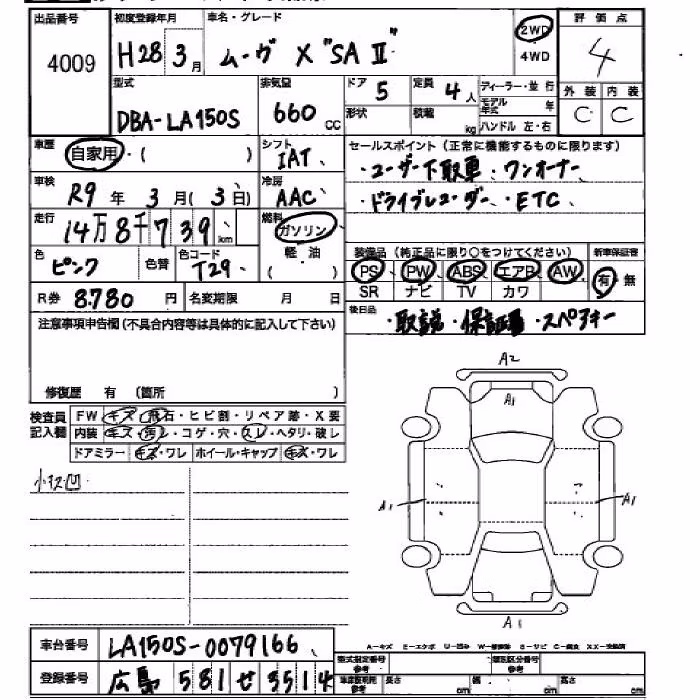 出品番号
4009
初度登録年月
H28 3月
車名・グレード
ムーヴ X "SA Ⅱ"
2WD
4WD
評価点
4
外装 内装
C C
型式
DBA-LA150S
排気量
660 CC
ドア
5
形状
定員
4人
積載
kg
ディーラー・並行
モデル年式 年
ハンドル 左・右
車歴
自家用・( )
シフト
IAT
セールスポイント(正常に機能するものに限ります)
・ユーザー下取車・ワンオーナー
・ドライブレコーダー・ETC
車検
R9年 3月(3日)
冷房
AAC
走行
14万8千739km
燃料
ガソリン
軽・油
( )
色
ピンク
色替
色コード
T29
装備品(純正品に限り○をつけてください)
PS PW ABS エアB AW
SR ナビ TV カワ
新車保証書
有・無
R券 8780円
名変期限 月 日
後日品
・取説・保証書・スペアキー
注意事項申告欄(不具合内容等は具体的に記入して下さい)
修復歴 有 (箇所 )
検査員記入欄
FW キズ・飛石・ヒビ割・リペア跡・X要
内装 キズ・汚レ・コゲ・穴・スレ・ヘタリ・破レ
ドアミラー キズ・ワレ ホイール・キャップ キズ・ワレ
小キズ凹
A2
A1
A1
A1
A1
A-キズ E-エクボ U-凹み W-補修跡 S-サビ C-腐食 XX-交換済
車台番号
LA150S-0079166
登録番号
広島 581 せ 3514
型式指定番号
参考
類別区分番号
参考
車庫証明用
参考
長さ cm
幅 cm
高さ cm